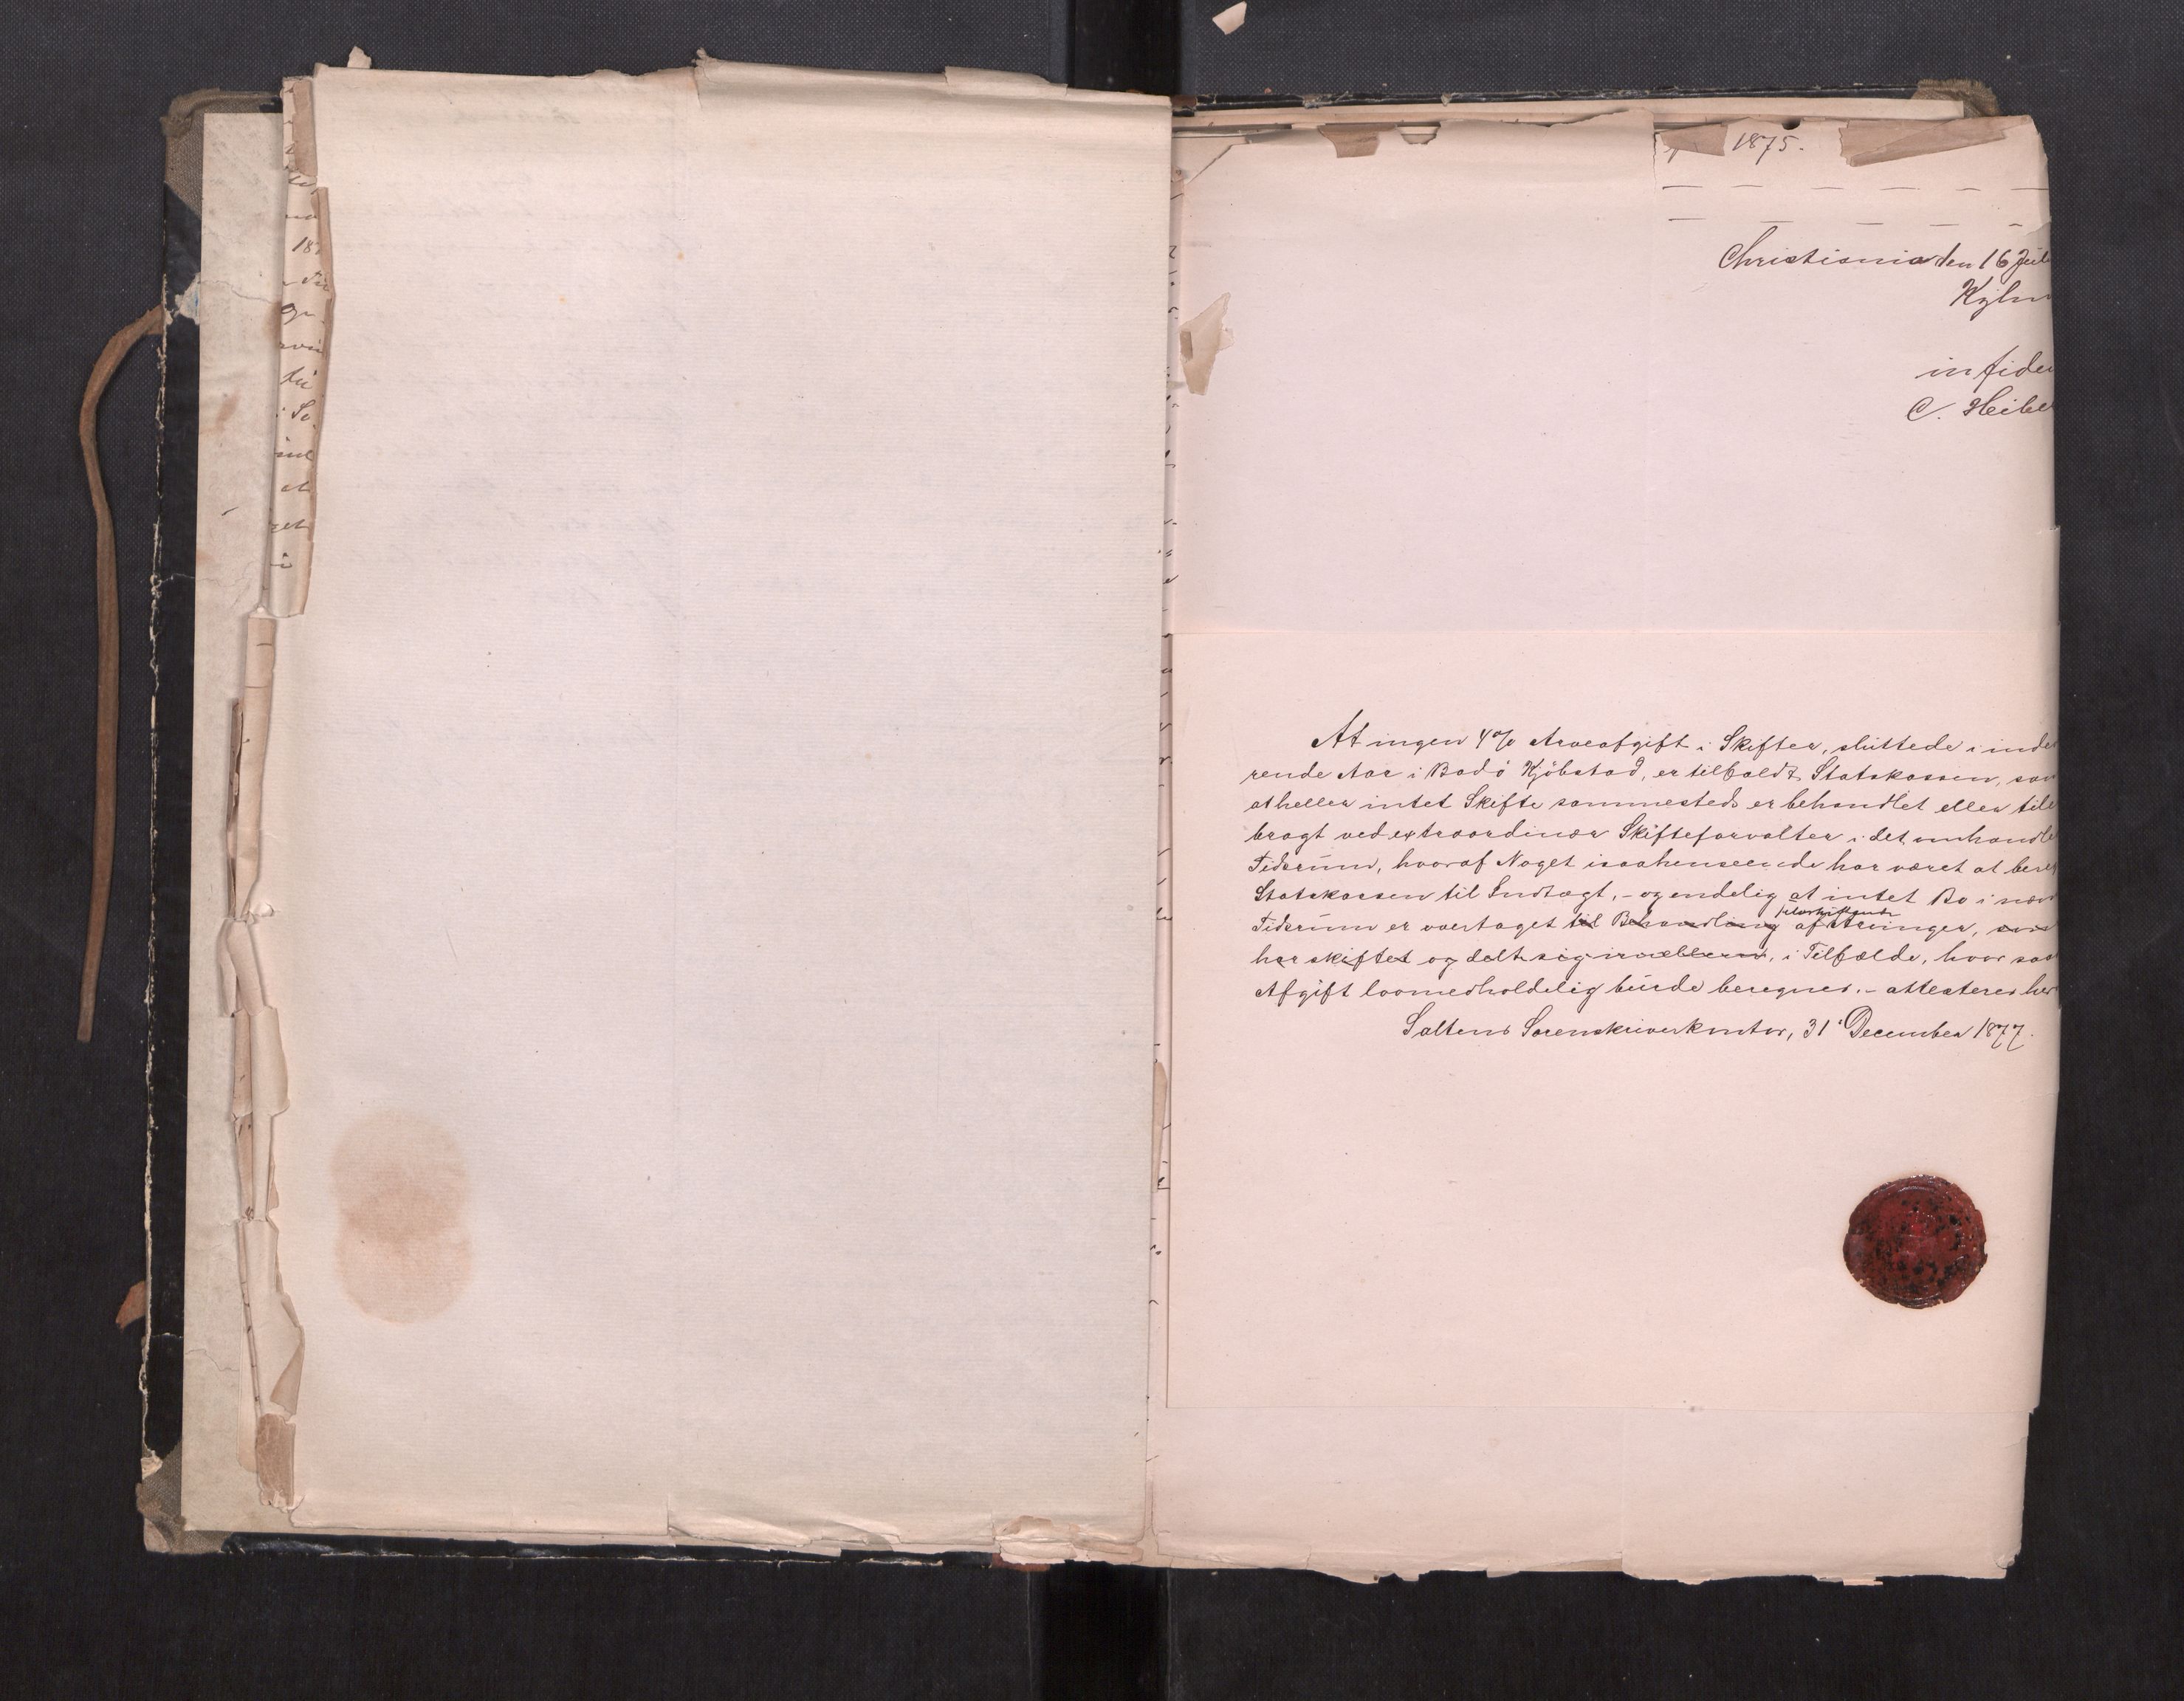 1875.
Christiania den 16 Juli
Kyhn
in fidem
C. Heibe
18
At ingen 4% Arveafgift i Skifter, sluttede i inde
rende Aar i Bodö Kjöbstad, er tilfaldt Statskassen, sam
at heller intet Skifte sammesteds er behandlet eller tile
bragt ved extraordinær Skifteforvalter i det omhandle
Tidsrum, hvoraf Noget i saa henseende har været at bereg
Statskassen til Indtægt, - og endelig at intet Bo i næv
Tidsrum er overtaget til Behandling af selvskiftende Arvinger, som
har skiftet og delt sig imellem, i Tilfælde, hvor saa
Afgift lovmedholdelig burde beregnes. - attesteres her
Saltens Sorenskriverkontor, 31 December 1877.